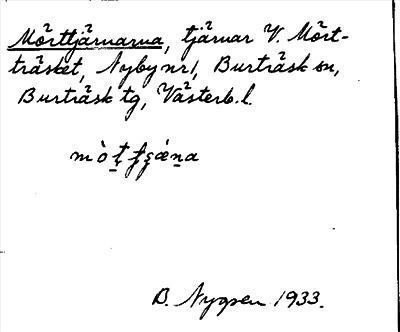 Mörttjärnarna, tjärnar V. Mört-
träsket, Nyby nr 1, Burträsk sn,
Burträsk tg, Västerb. l.
B. Nygren 1933.